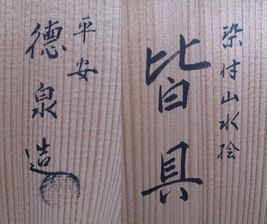 染付山水絵
皆具
平安
徳泉造